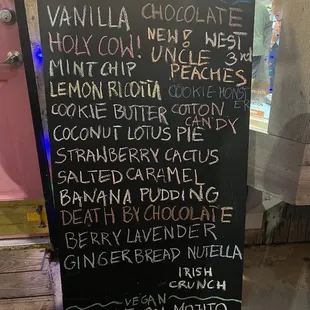 VANILLA CHOCOLATE
HOLY COW! NEW! WEST
UNCLE 3rd
MINT CHIP PEACHES
LEMON RICOTTA COOKIE-MONST
ER
COOKIE BUTTER COTTON
CANDY
COCONUT LOTUS PIE
STRAWBERRY CACTUS
SALTED CARAMEL
BANANA PUDDING
DEATH BY CHOCOLATE
BERRY LAVENDER
GINGERBREAD NUTELLA
IRISH
CRUNCH
VEGAN
MOJITO